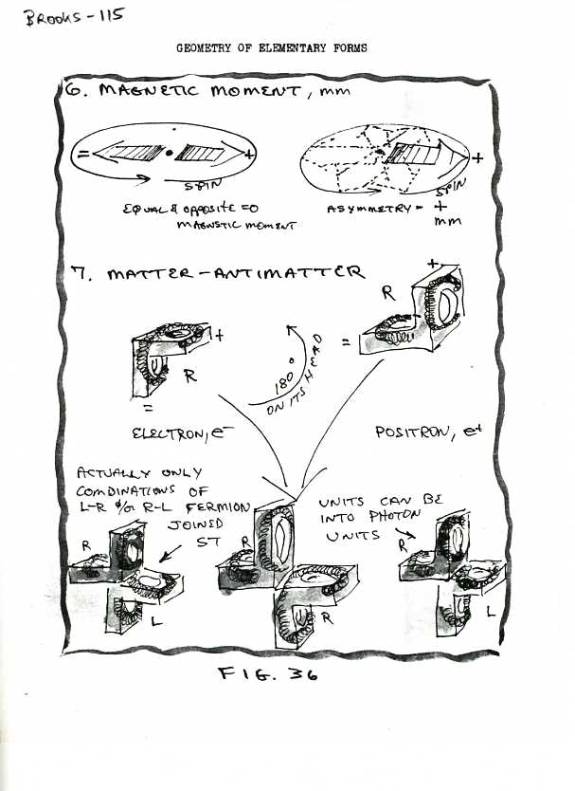 BROOKS-115
GEOMETRY OF ELEMENTARY FORMS
6. MAGNETIC MOMENT, mm
= +
SPIN
+
SPIN
EQUAL & OPPOSITE = 0
MAGNETIC MOMENT
ASYMMETRY = +
mm
7. MATTER-ANTIMATTER
+
R
=
+
R
=
180°
ON ITS HEAD
ELECTRON, e-
POSITRON, e+
ACTUALLY ONLY
COMBINATIONS OF
L-R R-L FERMION
JOINED
ST
UNITS CAN BE
INTO PHOTON
UNITS
R
L
R
R
R
L
FIG. 36